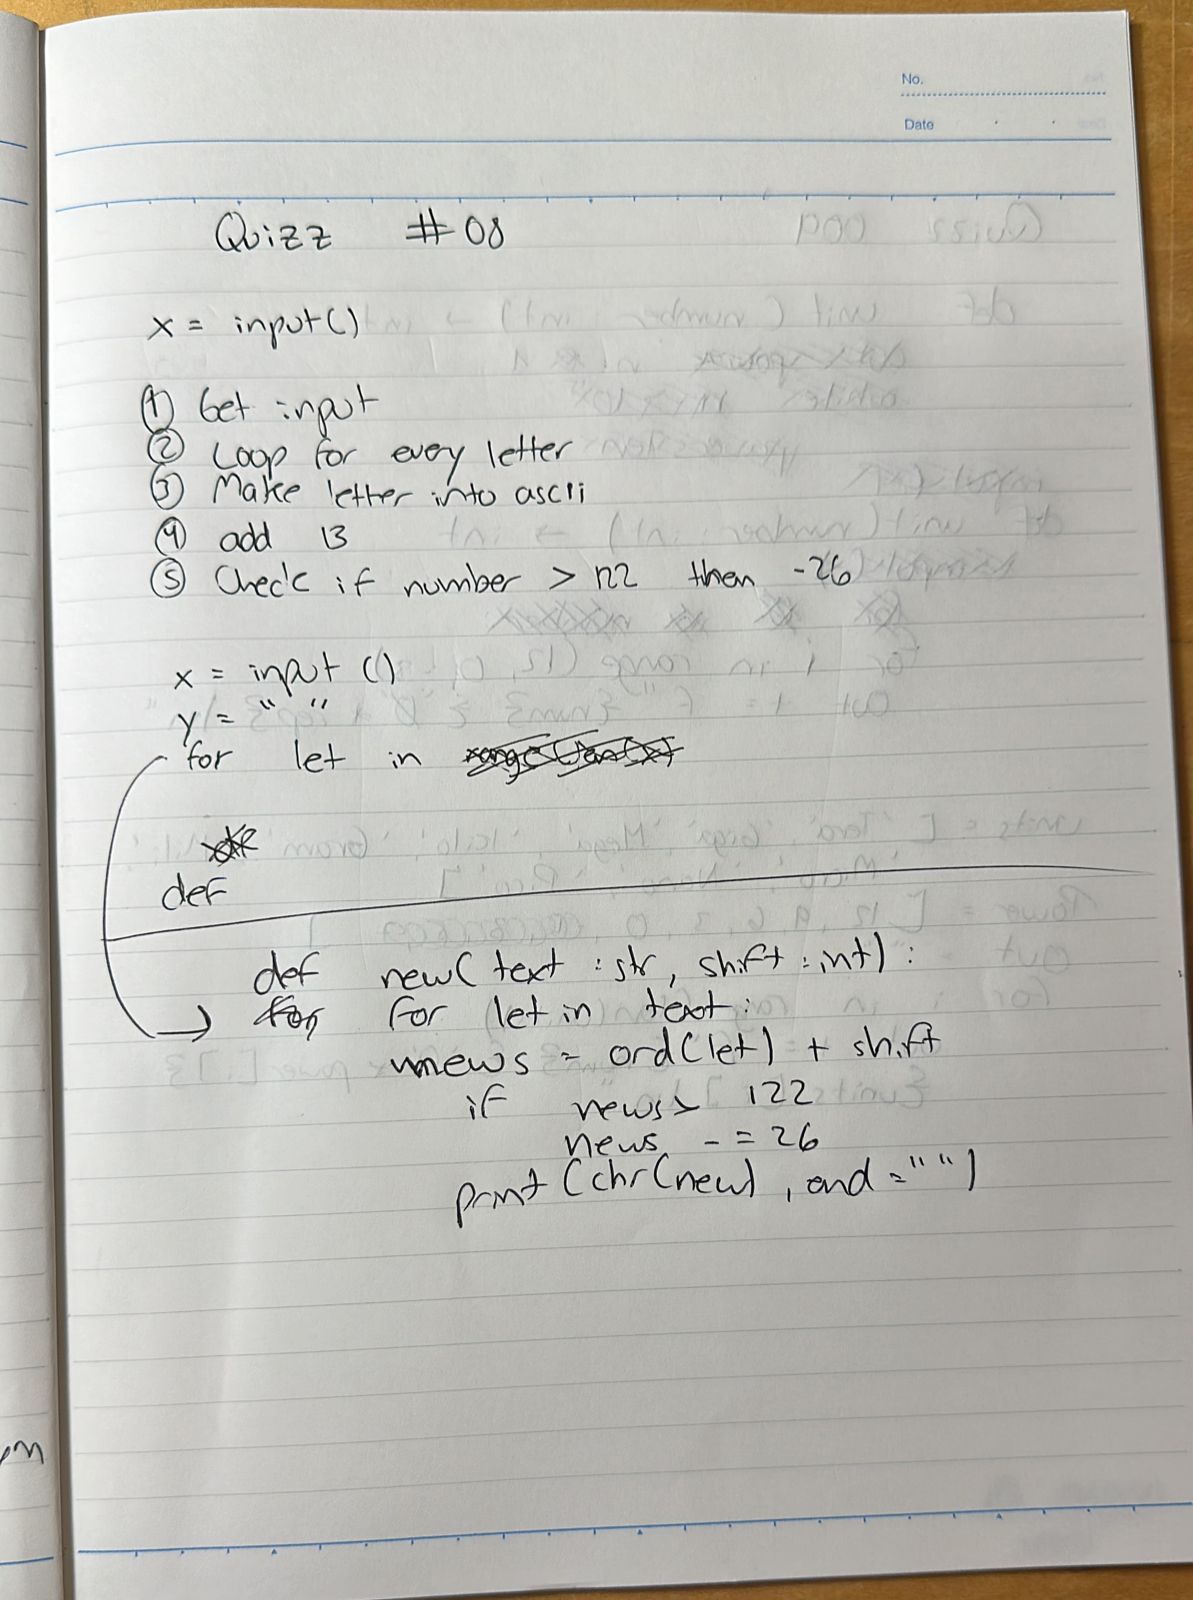 No.
Date
Quizz #08
x = input()
① Get input
② Loop for every letter
③ Make letter into ascii
④ add 13
⑤ Check if number > 122 then -26
x = input ()
y = " "
for let in
def
def new( text : str, shift : int) :
for for let in text:
news = ord(let) + shift
if news > 122
news -= 26
print (chr(new) , end = " ")